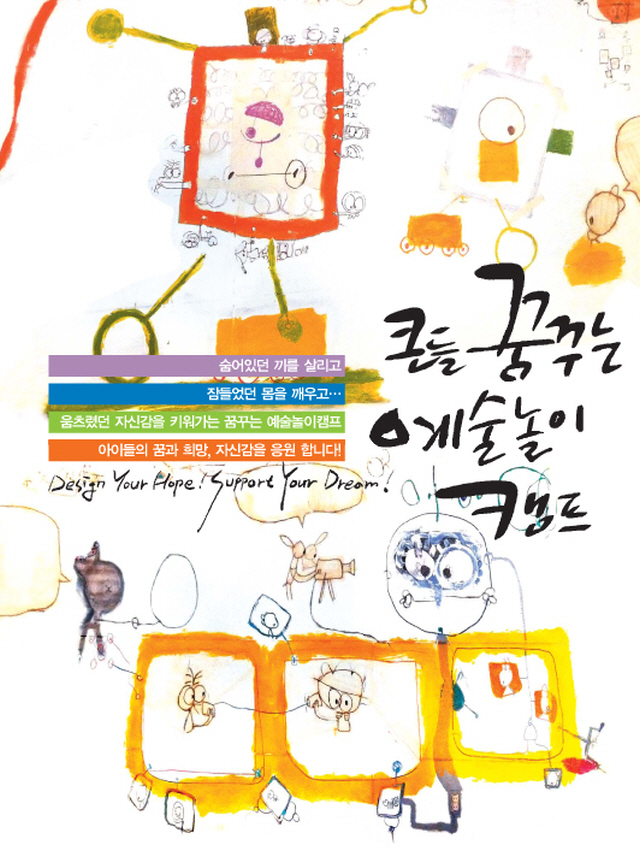 큰들 꿈꾸는
예술놀이
캠프
숨어있던 끼를 살리고
잠들었던 몸을 깨우고…
움츠렸던 자신감을 키워가는 꿈꾸는 예술놀이캠프
아이들의 꿈과 희망, 자신감을 응원 합니다!
Design Your Hope! Support Your Dream!